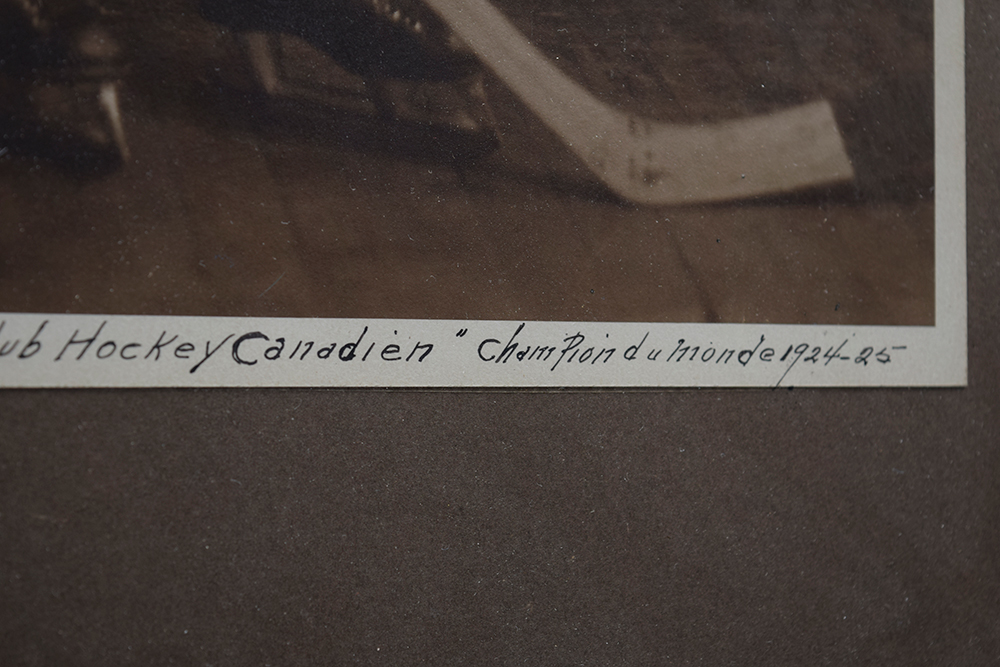 ub Hockey Canadien " Champion du monde 1924-25